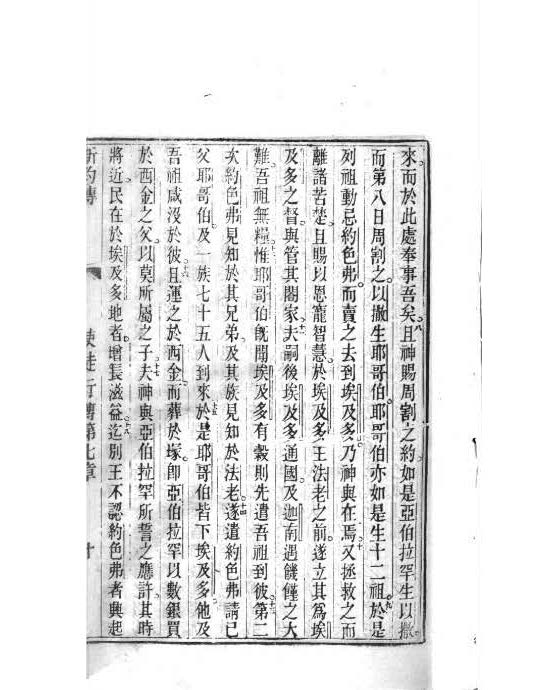 來而於此處奉事吾矣。八且神賜周割之約如是亞伯拉罕生以撒
而第八日周割之。以撒生耶哥伯。耶哥伯亦如是生十二祖。九於是
列祖動忌約色弗。而賣之去到埃及多。乃神與在焉。十又拯救之而
離諸苦楚。且賜以恩寵智慧於埃及多王法老之前。遂立其為埃
及多之督。與管其闔家。十一夫嗣後埃及多通國。及迦南遇饑僅之大
難。吾祖無糧。十二惟耶哥伯旣聞埃及多有糓則先遣吾祖到彼。十三第二
次約色弗見知於其兄弟。及其族見知於法老。十四遂遣約色弗請已
父耶哥伯。及一族七十五人到來。十五於是耶哥伯皆下埃及多他及
吾祖咸沒於彼。十六且運之於西金。而葬於塚。卽亞伯拉罕以數銀買
於西金之父。以莫所屬之子。十七夫神與亞伯拉罕所誓之應許。其時
將近。民在於埃及多地者。增長滋益。十八迄別王不認約色弗者興起
新約傳 使徒行傳第七章 十